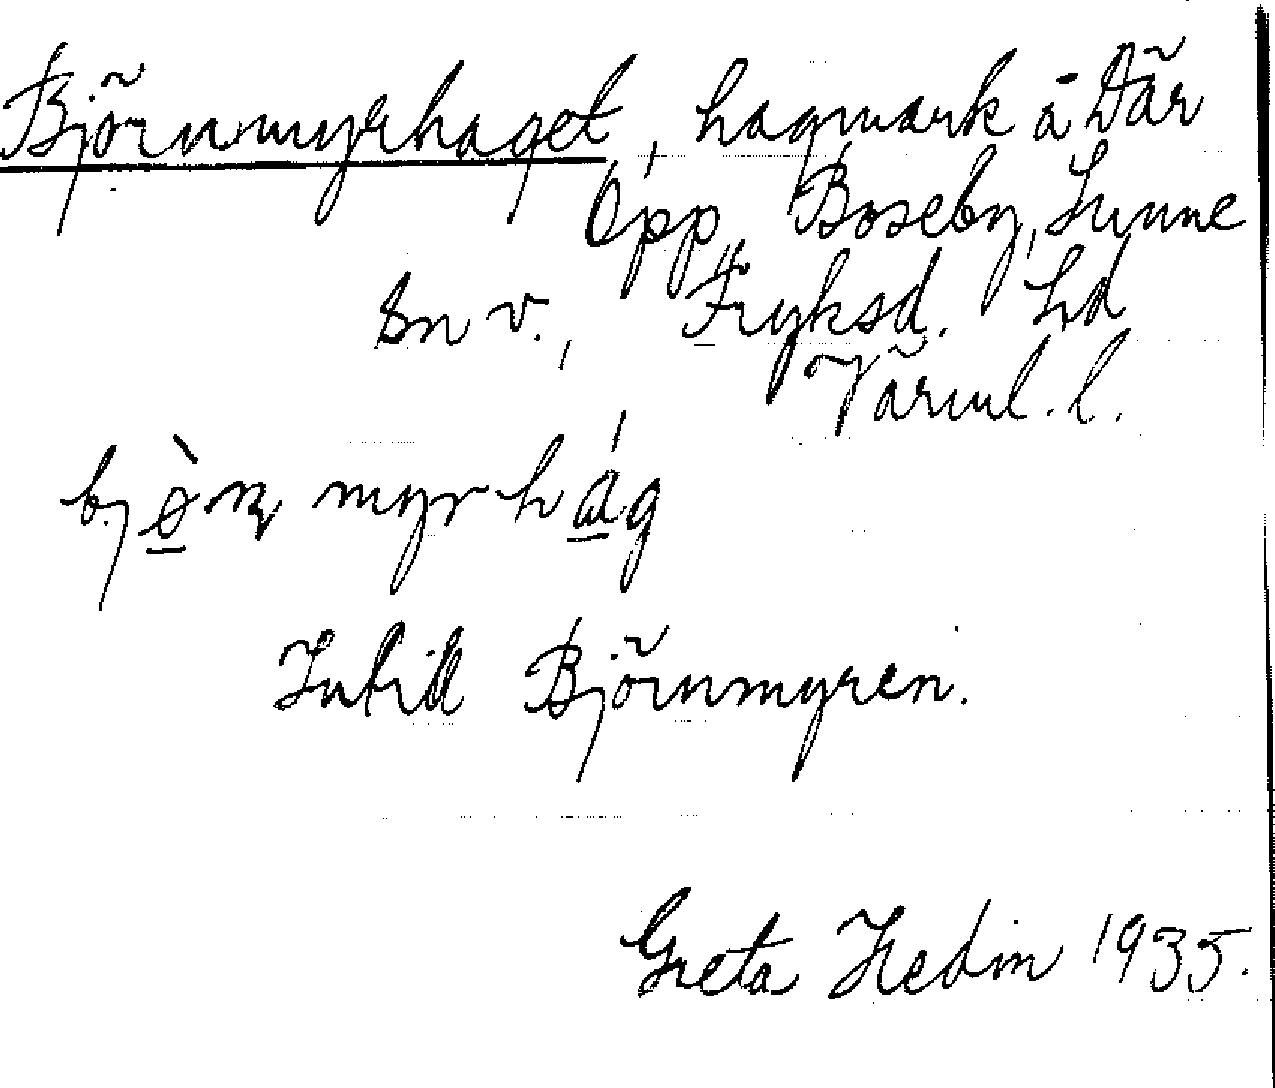 Björnmyrhaget, hagmark å Där
Opp, Boseby, Sunne
Sn v., Fryksd. hd
Värml. l.
bjø̀ɳ myrhág
Intill Björnmyren.
Greta Hedin 1935.